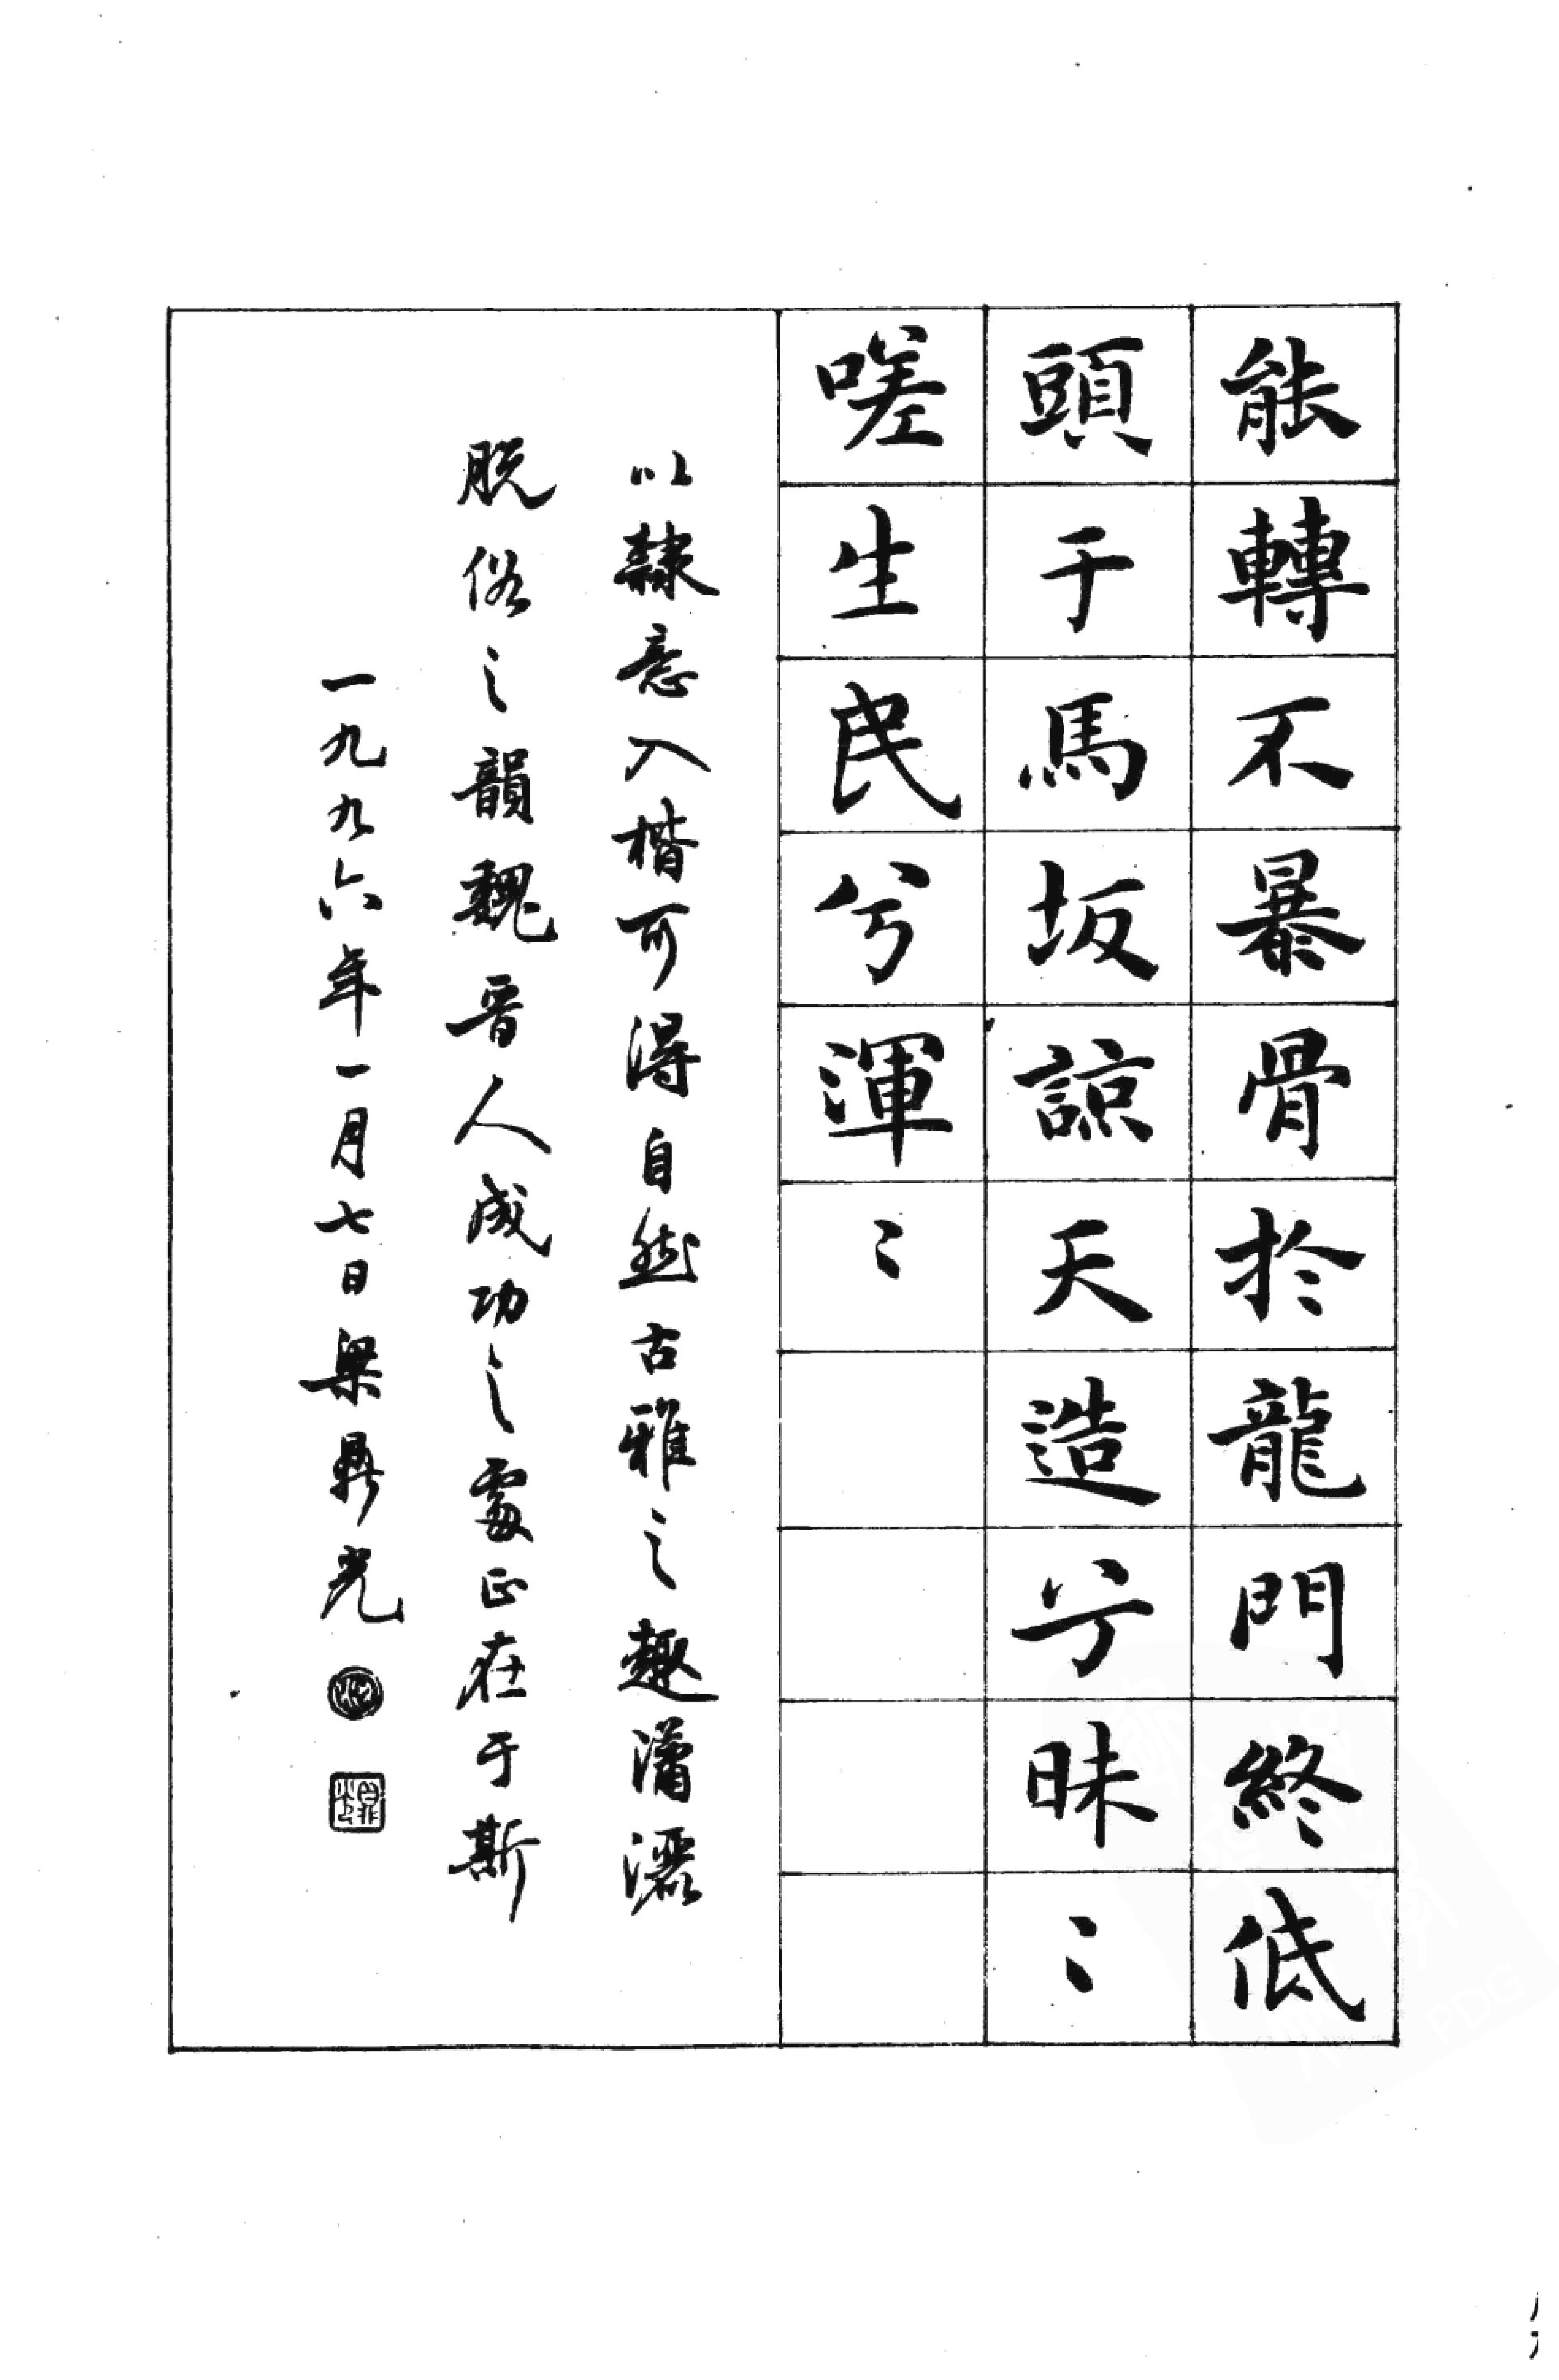 能轉不暴骨於龍門終低
頭于馬坂諒天造兮昧〻
嗟生民兮渾〻
以隸意入楷可得自然古雅之趣瀟灑
脫俗之韻魏晉人成功之處正在于斯
一九九六年一月七日梁鼎光
PDG